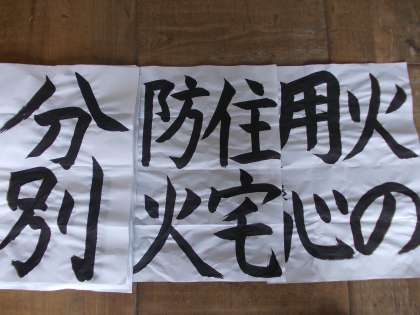 火の
用心
住宅
防火
分別